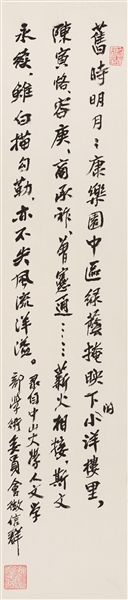 舊時明月：康樂園中區綠蔭掩映下小洋樓裡，
舊
陳寅恪、容庚、商承祚、曾憲通……薪火相接，斯文
永續，雖白描勾勒，亦不失風流洋溢。
录自中山大學人文学
部學術委員會微信群